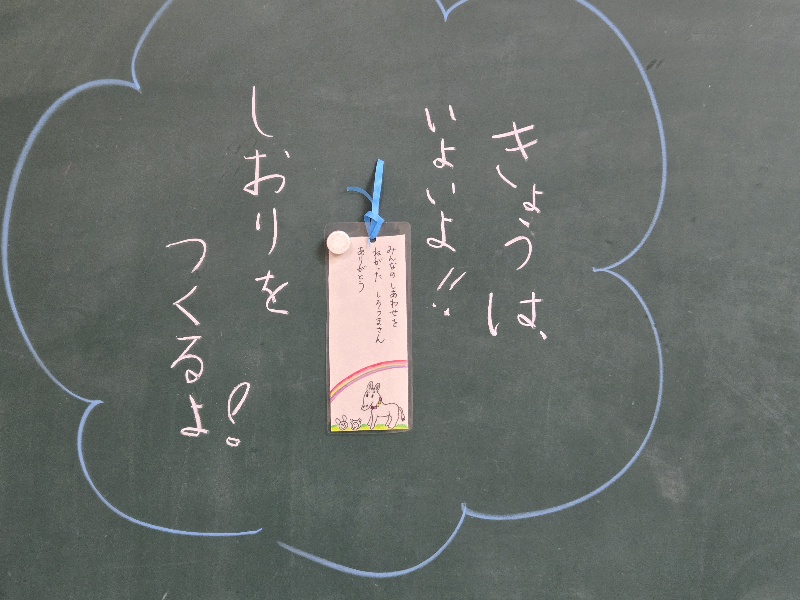 きょうは、
いよいよ!!
しおりを
つくるよ!
みんなのしあわせを
ねがった しろうまさん
ありがとう